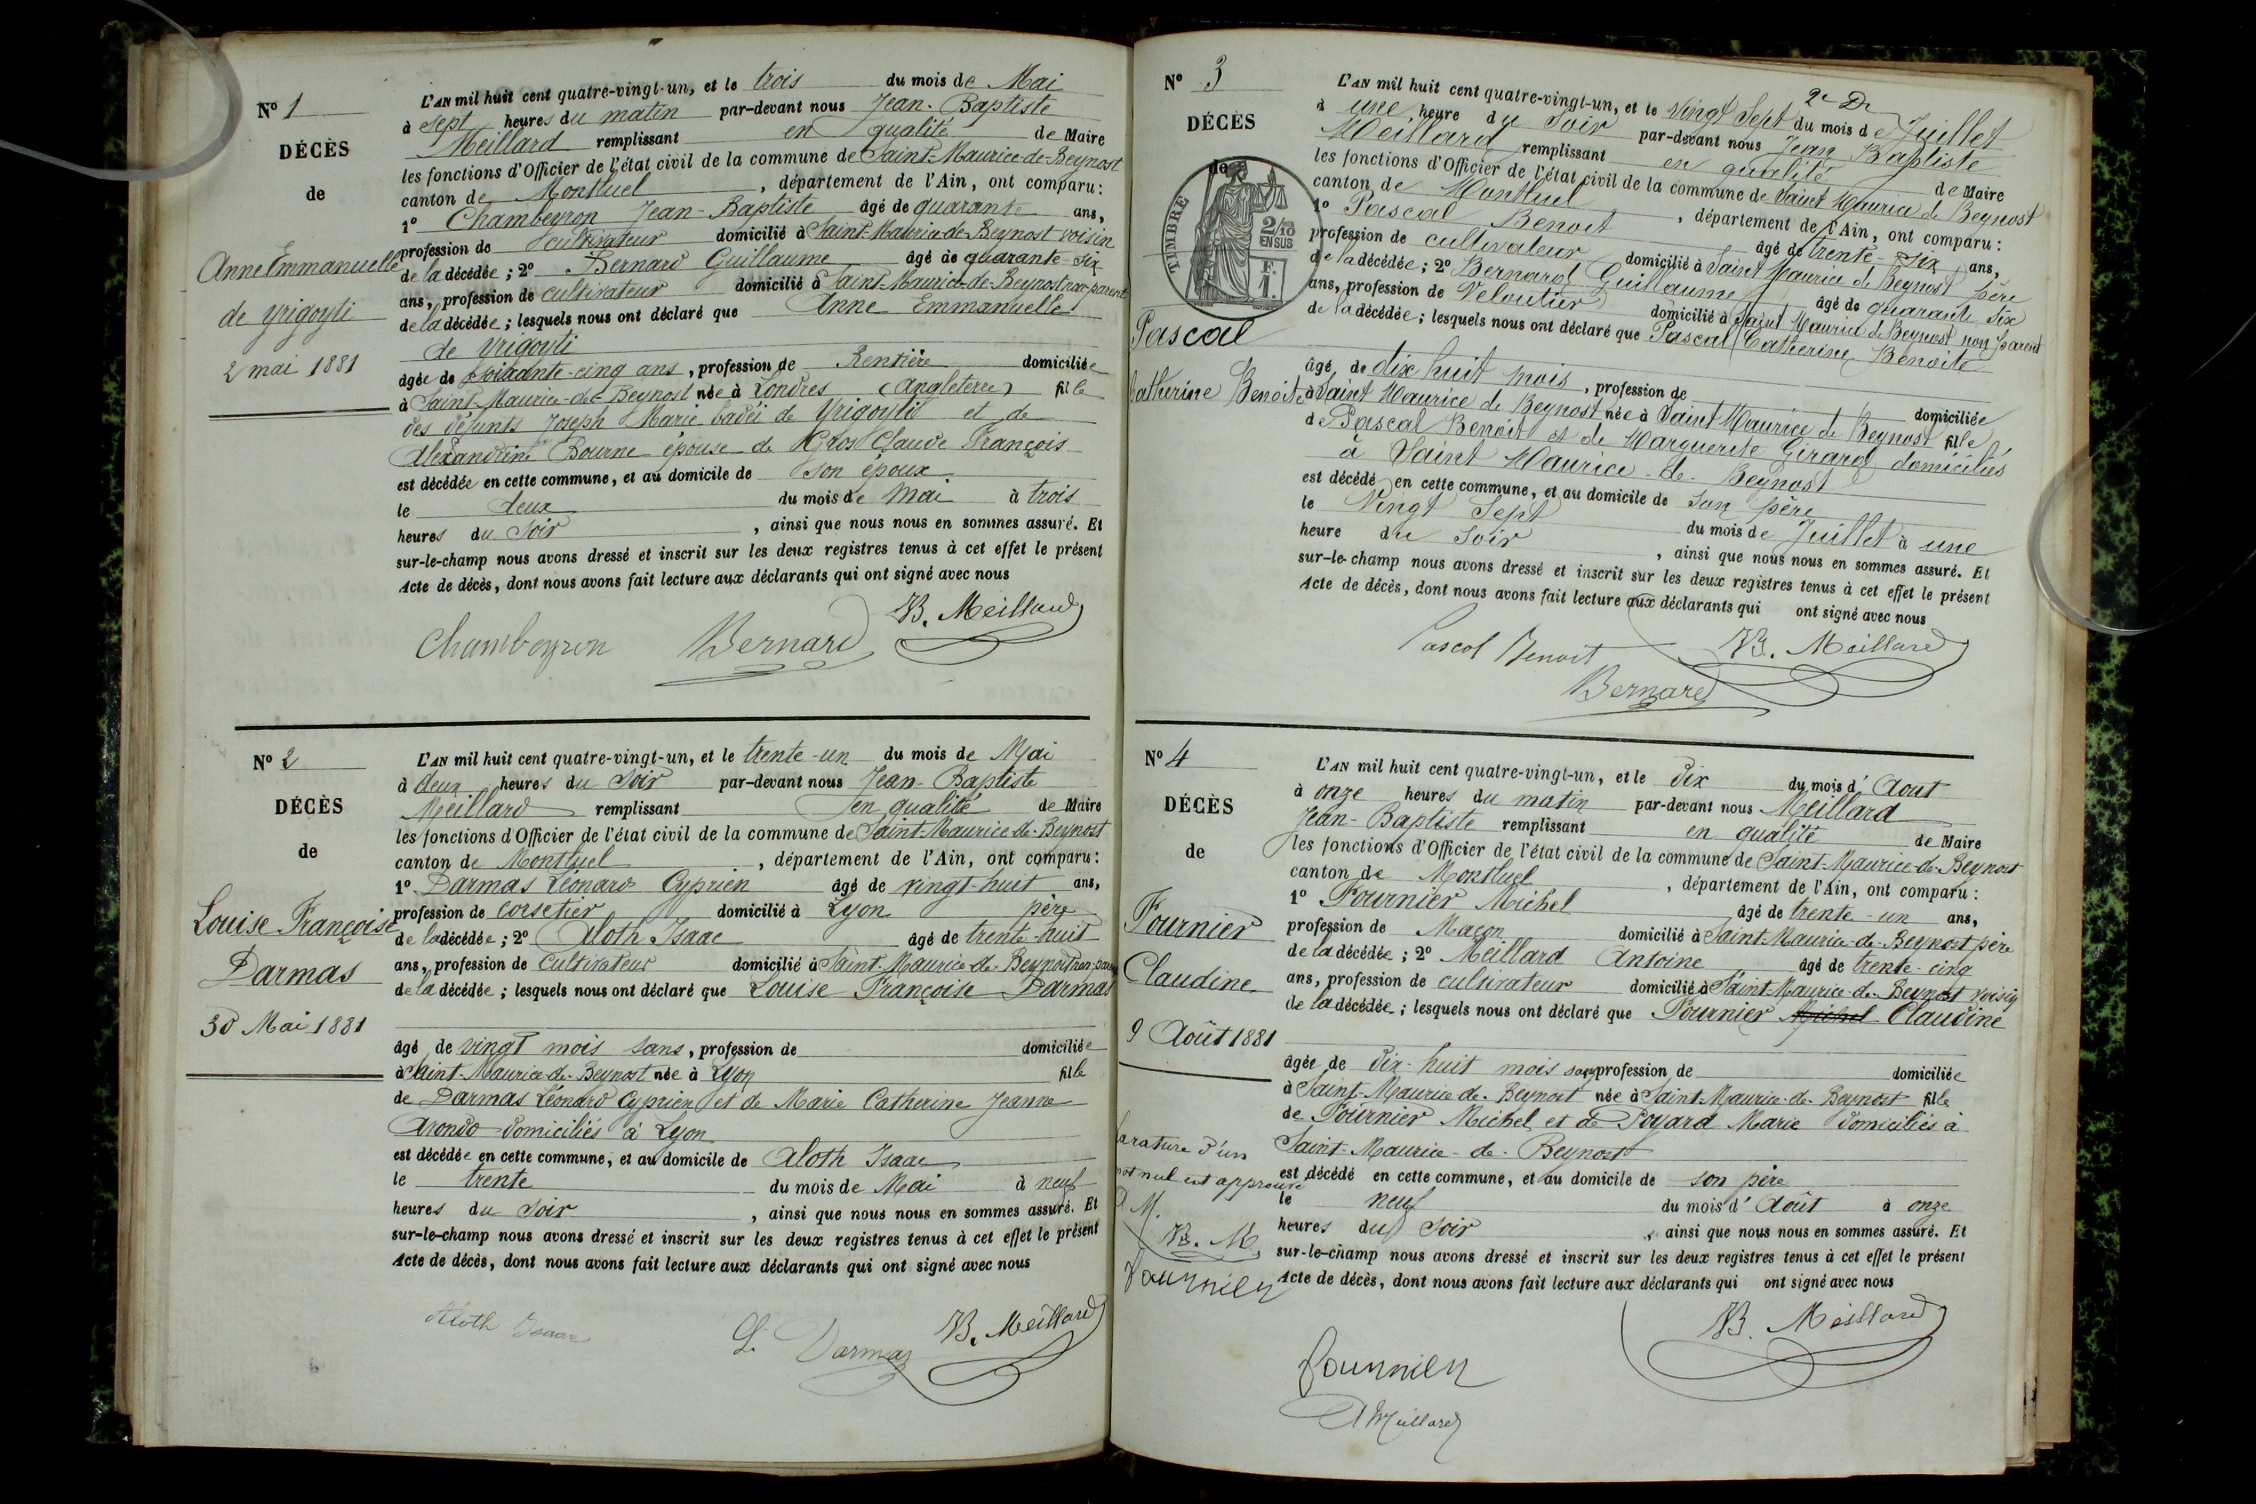 N° 1
DÉCÈS
de
Anne Emmanuelle
de Yrigoyti
2 mai 1881
L'AN mil huit cent quatre-vingt-un, et le trois du mois de Mai
à sept heures du matin par-devant nous Jean-Baptiste
Meillard remplissant en qualité de Maire
les fonctions d'Officier de l'état civil de la commune de Saint-Maurice-de-Beynost
canton de Montluel, département de l'Ain, ont comparu :
1° Chambeyron Jean-Baptiste âgé de quarante ans,
profession de cultivateur domicilié à Saint-Maurice-de-Beynost voisin
de la décédée ; 2° Bernard Guillaume âgé de quarante-six
ans, profession de cultivateur domicilié à Saint-Maurice-de-Beynost non parent
de la décédée ; lesquels nous ont déclaré que Anne Emmanuelle
de Yrigoyti
âgée de soixante-cinq ans, profession de Rentière domiciliée
à Saint-Maurice-de-Beynost née à Londres (Angleterre) fille
des défunts Joseph Marie de Yrigoyti et de
Alexandrine Bourne épouse de Gros Claude François
est décédée en cette commune, et au domicile de son époux
le deux du mois de Mai à trois
heures du soir, ainsi que nous nous en sommes assuré. Et
sur-le-champ nous avons dressé et inscrit sur les deux registres tenus à cet effet le présent
Acte de décès, dont nous avons fait lecture aux déclarants qui ont signé avec nous
JB. Meillard
Chambeyron Bernard
N° 2
DÉCÈS
de
Louise Françoise
Darmas
30 Mai 1881
L'AN mil huit cent quatre-vingt-un, et le trente-un du mois de Mai
à deux heures du soir par-devant nous Jean-Baptiste
Meillard remplissant en qualité de Maire
les fonctions d'Officier de l'état civil de la commune de Saint-Maurice-de-Beynost
canton de Montluel, département de l'Ain, ont comparu :
1° Darmas Léonard Cyprien âgé de vingt-huit ans,
profession de corsetier domicilié à Lyon père
de la décédée ; 2° Aloth Isaac âgé de trente-huit
ans, profession de Cultivateur domicilié à Saint-Maurice-de-Beynost non-parent
de la décédée ; lesquels nous ont déclaré que Louise Françoise Darmas
âgé de vingt mois sans, profession de domiciliée
à Saint-Maurice-de-Beynost née à Lyon fille
de Darmas Léonard Cyprien et de Marie Catherine Jeanne
Arondo domiciliés à Lyon
est décédée en cette commune, et au domicile de Aloth Isaac
le trente du mois de Mai à neuf
heures du soir, ainsi que nous nous en sommes assuré. Et
sur-le-champ nous avons dressé et inscrit sur les deux registres tenus à cet effet le présent
Acte de décès, dont nous avons fait lecture aux déclarants qui ont signé avec nous
Aloth Isaac L. Darmas JB. Meillard
N° 3
DÉCÈS
de
TIMBRE
2/10
EN SUS
F.
1.
Pascal
Catherine Benoite
2e Dr
L'AN mil huit cent quatre-vingt-un, et le vingt sept du mois de Juillet
à une heure du soir par-devant nous Jean Baptiste
Meillard remplissant en qualité de Maire
les fonctions d'Officier de l'état civil de la commune de Saint Maurice de Beynost
canton de Montluel, département de l'Ain, ont comparu :
1° Pascal Benoit âgé de trente-six ans,
profession de cultivateur domicilié à Saint Maurice de Beynost père
de la décédée ; 2° Bernard Guillaume âgé de quarante six
ans, profession de Veloutier domicilié à Saint Maurice de Beynost non parent
de la décédée ; lesquels nous ont déclaré que Pascal Catherine Benoite
âgé de dix huit mois, profession de domiciliée
à Saint Maurice de Beynost née à Saint Maurice de Beynost fille
de Pascal Benoit et de Marguerite Girard domiciliés
à Saint Maurice de Beynost
est décédé en cette commune, et au domicile de son père
le Vingt Sept du mois de Juillet à une
heure du soir, ainsi que nous nous en sommes assuré. Et
sur-le-champ nous avons dressé et inscrit sur les deux registres tenus à cet effet le présent
Acte de décès, dont nous avons fait lecture aux déclarants qui ont signé avec nous
Pascal Benoit JB. Meillard
Bernard
N° 4
DÉCÈS
de
Fournier
Claudine
9 Août 1881
L'AN mil huit cent quatre-vingt-un, et le dix du mois d'Aout
à onze heures du matin par-devant nous Meillard
Jean-Baptiste remplissant en qualité de Maire
les fonctions d'Officier de l'état civil de la commune de Saint-Maurice-de-Beynost
canton de Montluel, département de l'Ain, ont comparu :
1° Fournier Michel âgé de trente-un ans,
profession de Maçon domicilié à Saint-Maurice-de-Beynost père
de la décédée ; 2° Meillard Antoine âgé de trente-cinq
ans, profession de cultivateur domicilié à Saint-Maurice-de-Beynost voisin
de la décédée ; lesquels nous ont déclaré que Fournier Michel Claudine
âgée de dix-huit mois sans profession de domiciliée
à Saint-Maurice-de-Beynost née à Saint-Maurice-de-Beynost fille
de Fournier Michel et de Poyard Marie domiciliés à
Saint-Maurice-de-Beynost
est décédé en cette commune, et au domicile de son père
le neuf du mois d'Août à onze
heures du soir, ainsi que nous nous en sommes assuré. Et
sur-le-champ nous avons dressé et inscrit sur les deux registres tenus à cet effet le présent
Acte de décès, dont nous avons fait lecture aux déclarants qui ont signé avec nous
rature d'un
mot nul est approuvé
JB. M.
Fournier
JB. Meillard
Fournier
A Meillard